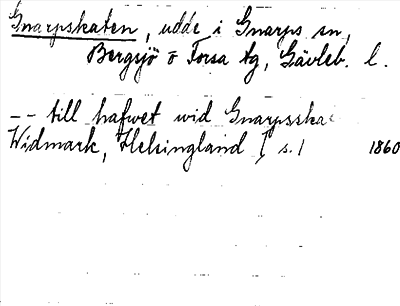 Gnarpskaten, udde i Gnarps sn,
Bergsjö o Forsa tg, Gävleb. l.
-- till hafwet wid Gnarpsska
Widmark, Helsingland I s. 1 1860